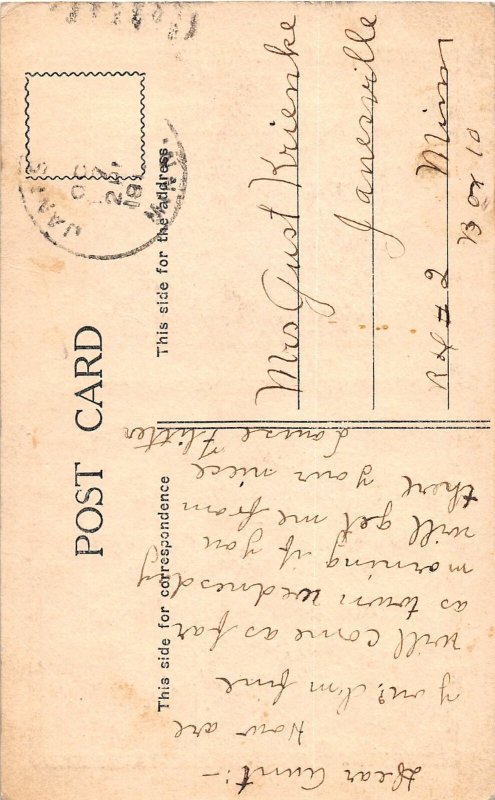 POST CARD
This side for correspondence
This side for the address
Dear Aunt:-
How are
you? I'm fine
will come as far
as town wednesday
morning if you
will get me from
there your niece
Louise Flitter
Mrs Gust Krienke
Janesville
Rd # 2 Minn
Box 10